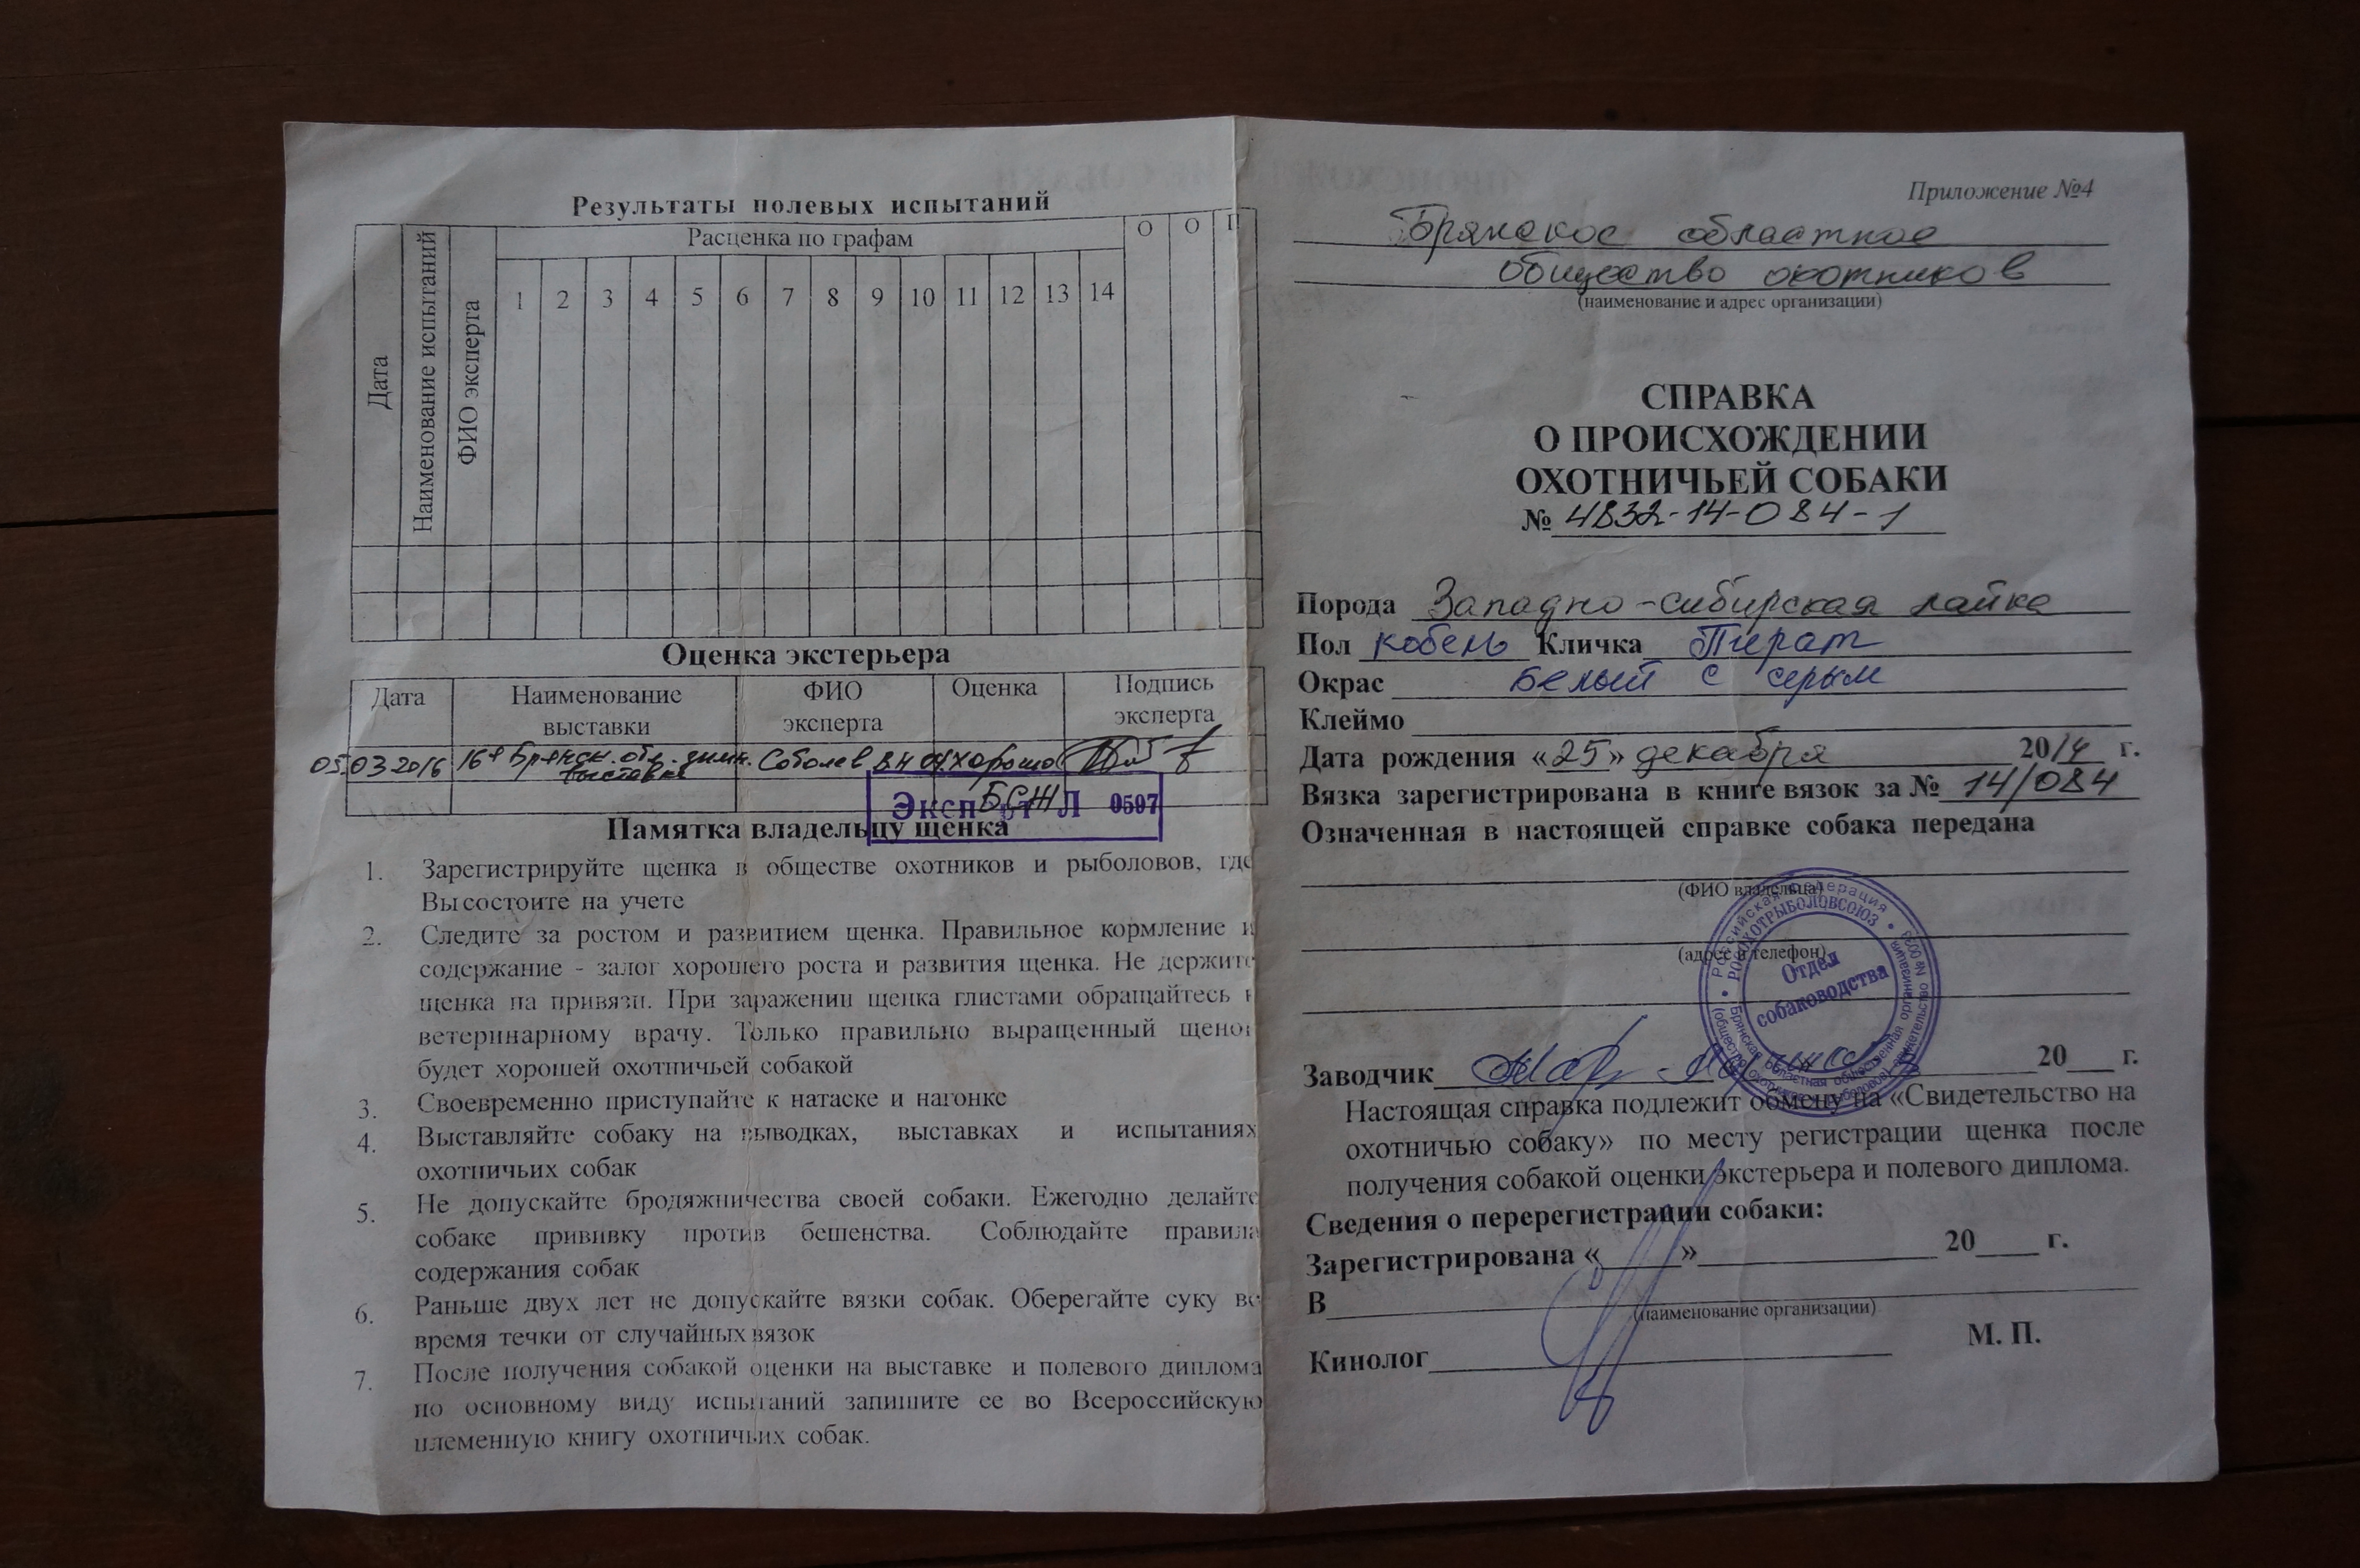 Результаты полевых испытаний
Дата
Наименование испытаний
ФИО эксперта
Расценка по графам
О О П
1 2 3 4 5 6 7 8 9 10 11 12 13 14
Оценка экстерьера
Дата Наименование выставки ФИО эксперта Оценка Подпись эксперта
05.03.2016 16я Брянск. обл. зимн. выставка Соболев В.Н. оч. хорошо
БСЖ
Эксперт Л 0597
Памятка владельцу щенка
1. Зарегистрируйте щенка в обществе охотников и рыболовов, где
Вы состоите на учете
2. Следите за ростом и развитием щенка. Правильное кормление и
содержание - залог хорошего роста и развития щенка. Не держите
щенка на привязи. При заражении щенка глистами обращайтесь к
ветеринарному врачу. Только правильно выращенный щенок
будет хорошей охотничьей собакой
3. Своевременно приступайте к натаске и нагонке
4. Выставляйте собаку на выводках, выставках и испытаниях
охотничьих собак
5. Не допускайте бродяжничества своей собаки. Ежегодно делайте
собаке прививку против бешенства. Соблюдайте правила
содержания собак
6. Раньше двух лет не допускайте вязки собак. Оберегайте суку во
время течки от случайных вязок
7. После получения собакой оценки на выставке и полевого диплома
по основному виду испытаний запишите ее во Всероссийскую
племенную книгу охотничьих собак.
Приложение №4
Брянское областное
общество охотников
(наименование и адрес организации)
СПРАВКА
О ПРОИСХОЖДЕНИИ
ОХОТНИЧЬЕЙ СОБАКИ
№ 4832-14-084-1
Порода Западно-сибирская лайка
Пол кобель Кличка Пират
Окрас Белый с серым
Клеймо
Дата рождения «25» декабря 2014 г.
Вязка зарегистрирована в книге вязок за № 14/084
Означенная в настоящей справке собака передана
(ФИО владельца)
(адрес и телефон)
Российская Федерация
РОСОХОТРЫБОЛОВСОЮЗ
Отдел
собаководства
Брянская областная общественная организация
Заводчик 20 г.
Настоящая справка подлежит обмену на «Свидетельство на
охотничью собаку» по месту регистрации щенка после
получения собакой оценки экстерьера и полевого диплома.
Сведения о перерегистрации собаки:
Зарегистрирована « » 20 г.
В
(наименование организации)
М. П.
Кинолог